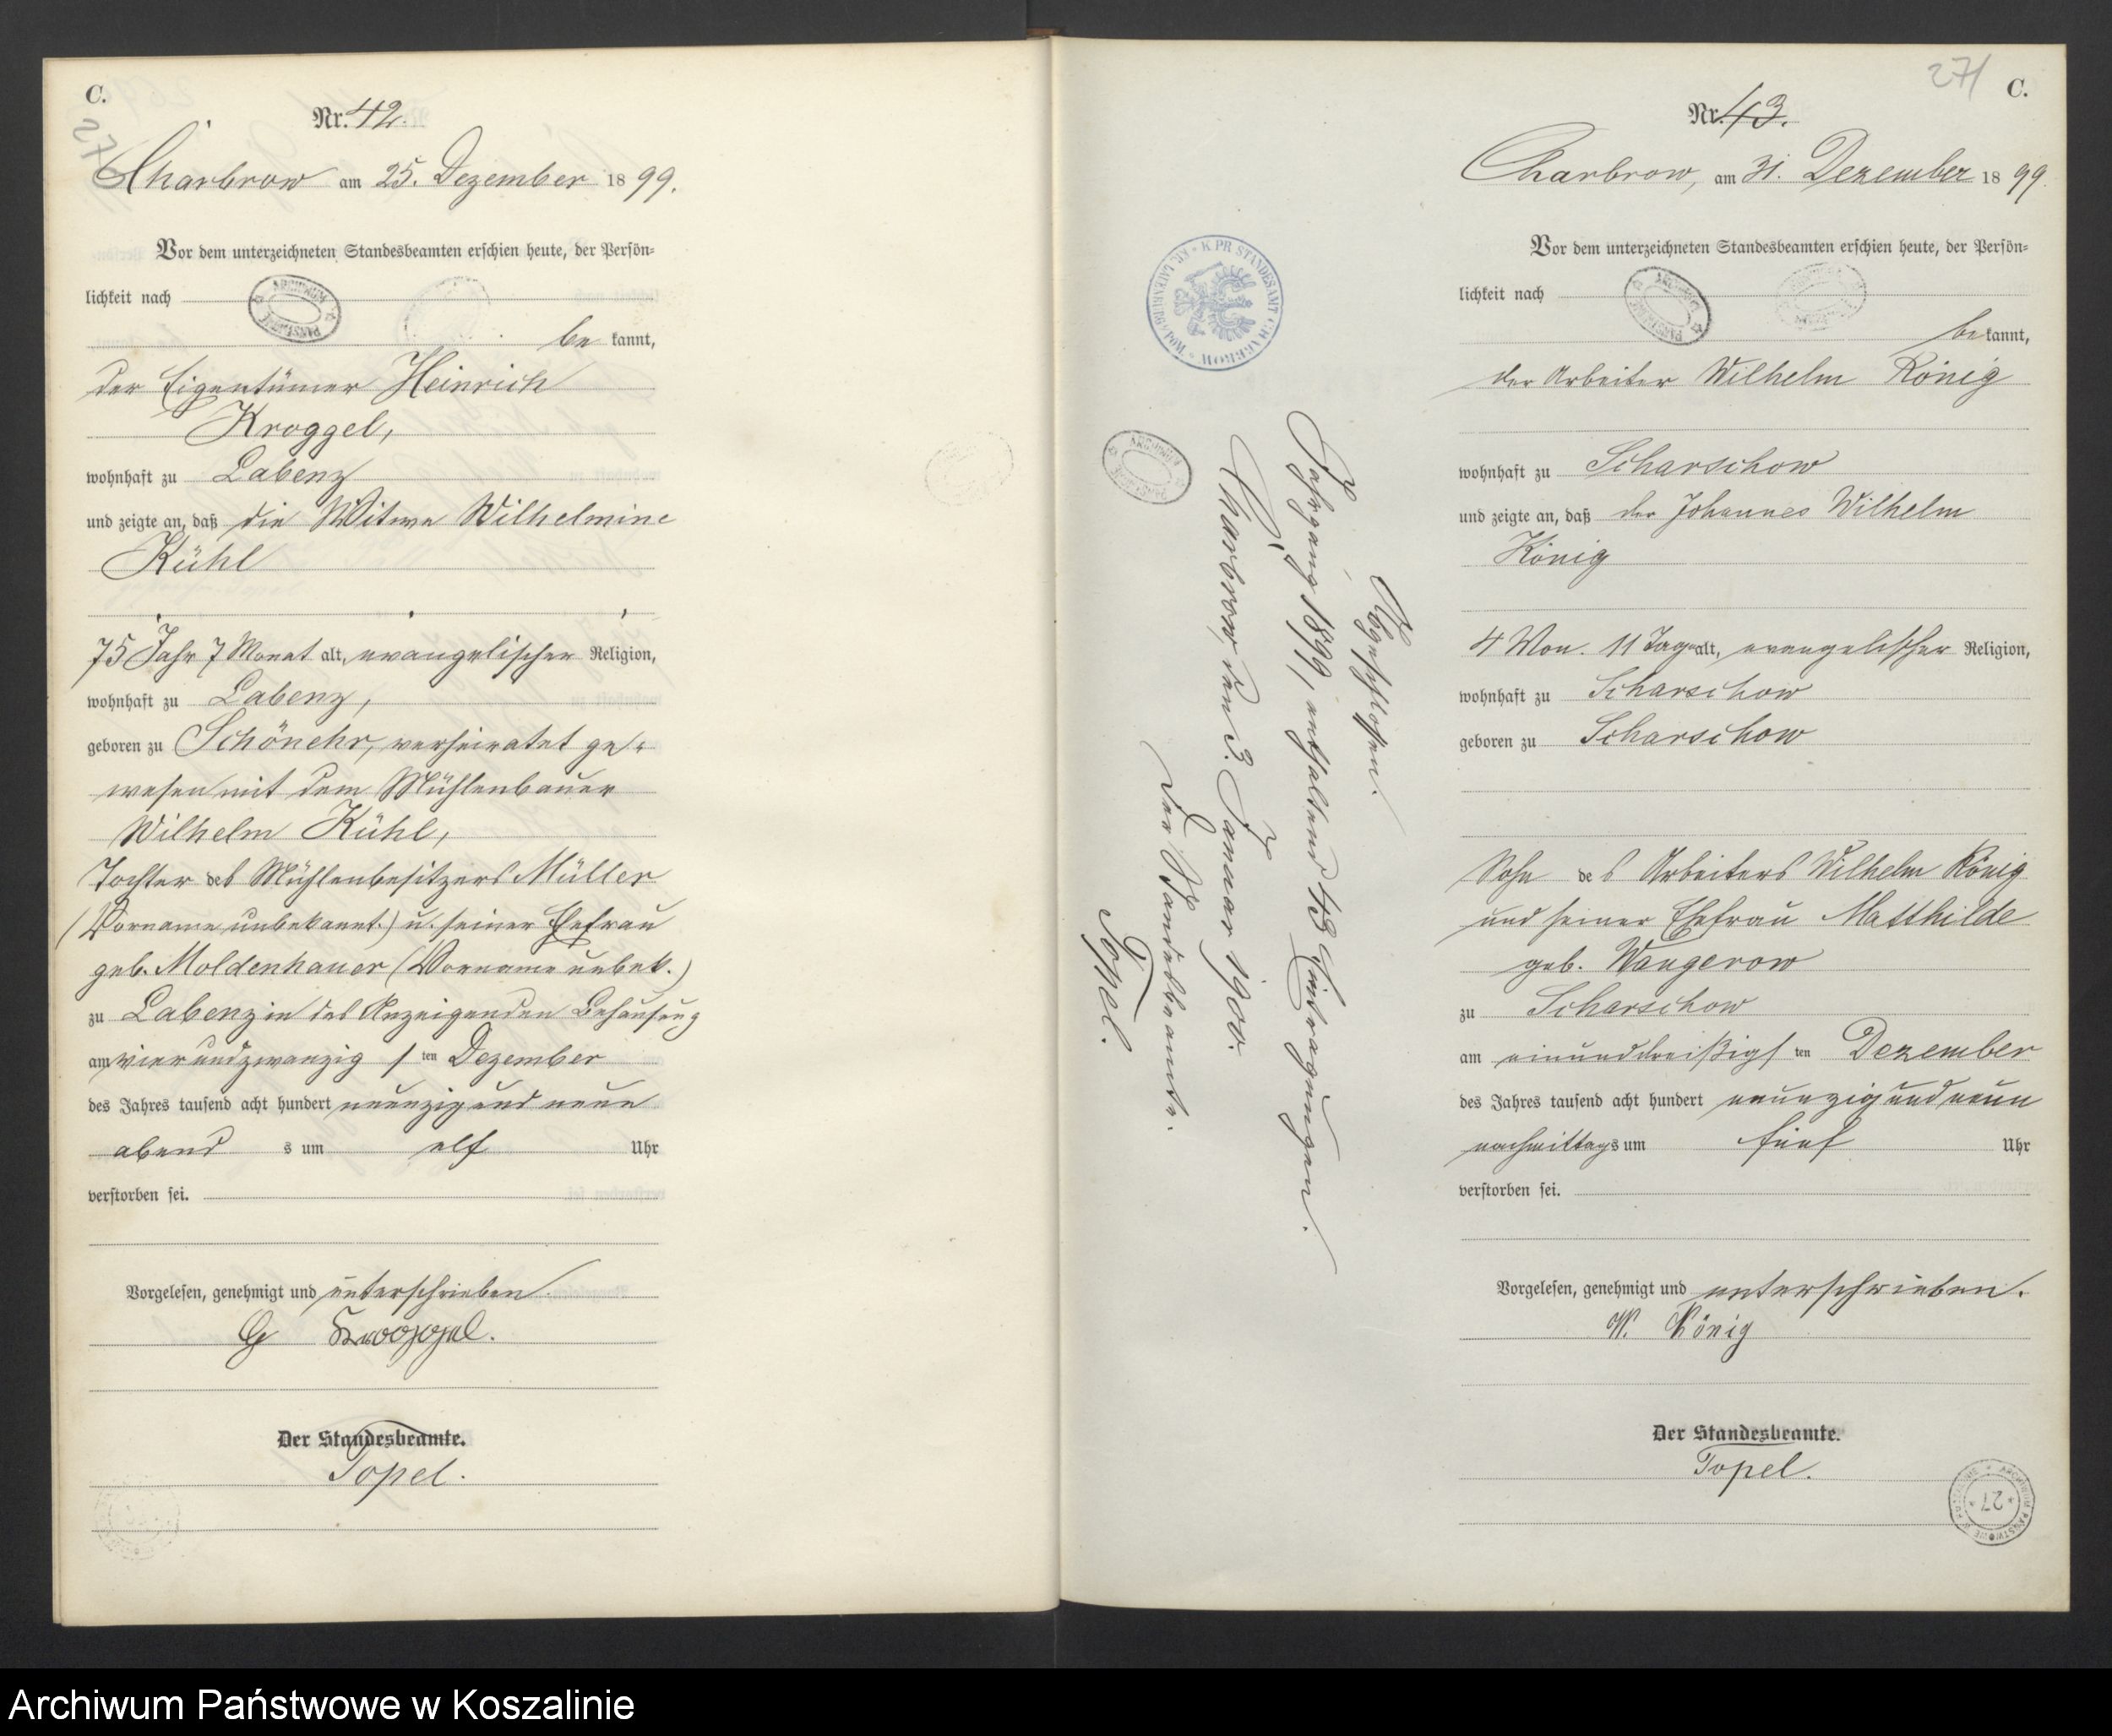 C.
Nr. 42.
Charbrow am 25. Dezember 1899.
Vor dem unterzeichneten Standesbeamten erschien heute, der Persön=
lichkeit nach
bekannt,
der Eigentümer Heinrich
Kroggel,
wohnhaft zu Labenz
und zeigte an, daß die Witwe Wilhelmine
Kühl
75 Jahr 7 Monat alt, evangelischer Religion,
wohnhaft zu Labenz,
geboren zu Schönehr, verheiratet ge=
wesen mit dem Mühlenbauer
Wilhelm Kühl,
Tochter des Mühlenbesitzers Müller
(Vorname unbekannt.) u. seiner Ehefrau
geb. Moldenhauer (Vorname unbek.)
zu Labenz in des Anzeigenden Behausung
am vierundzwanzigsten Dezember
des Jahres tausend acht hundert neunzig und neun
abends um elf Uhr
verstorben sei.
Vorgelesen, genehmigt und unterschrieben.
Kroggel.
Der Standesbeamte.
Topel.
271
C.
Nr. 43.
Charbrow, am 31. Dezember 1899.
Vor dem unterzeichneten Standesbeamten erschien heute, der Persön=
lichkeit nach
bekannt,
der Arbeiter Wilhelm König
wohnhaft zu Scharschow
und zeigte an, daß der Johannes Wilhelm
König
4 Mon. 11 Tage alt, evangelischer Religion,
wohnhaft zu Scharschow
geboren zu Scharschow
Sohn des Arbeiters Wilhelm König
und seiner Ehefrau Matthilde
geb. Wangerow
zu Scharschow
am einunddreißigsten Dezember
des Jahres tausend acht hundert neunzig und neun
nachmittags um fünf Uhr
verstorben sei.
Vorgelesen, genehmigt und unterschrieben.
W. König
Der Standesbeamte.
Topel.
Abgeschlossen.
Jahrgang 1899, enthaltend 43 Eintragungen.
Charbrow, den 3. Januar 1900.
Der Standesbeamte.
Topel.
K. PR. STANDESAMT CHARBROW * KR. LAUENBURG i/POM. *
ARCHIWUM PAŃSTWOWE
ARCHIWUM PAŃSTWOWE
ARCHIWUM PAŃSTWOWE
* 27 *
Archiwum Państwowe w Koszalinie